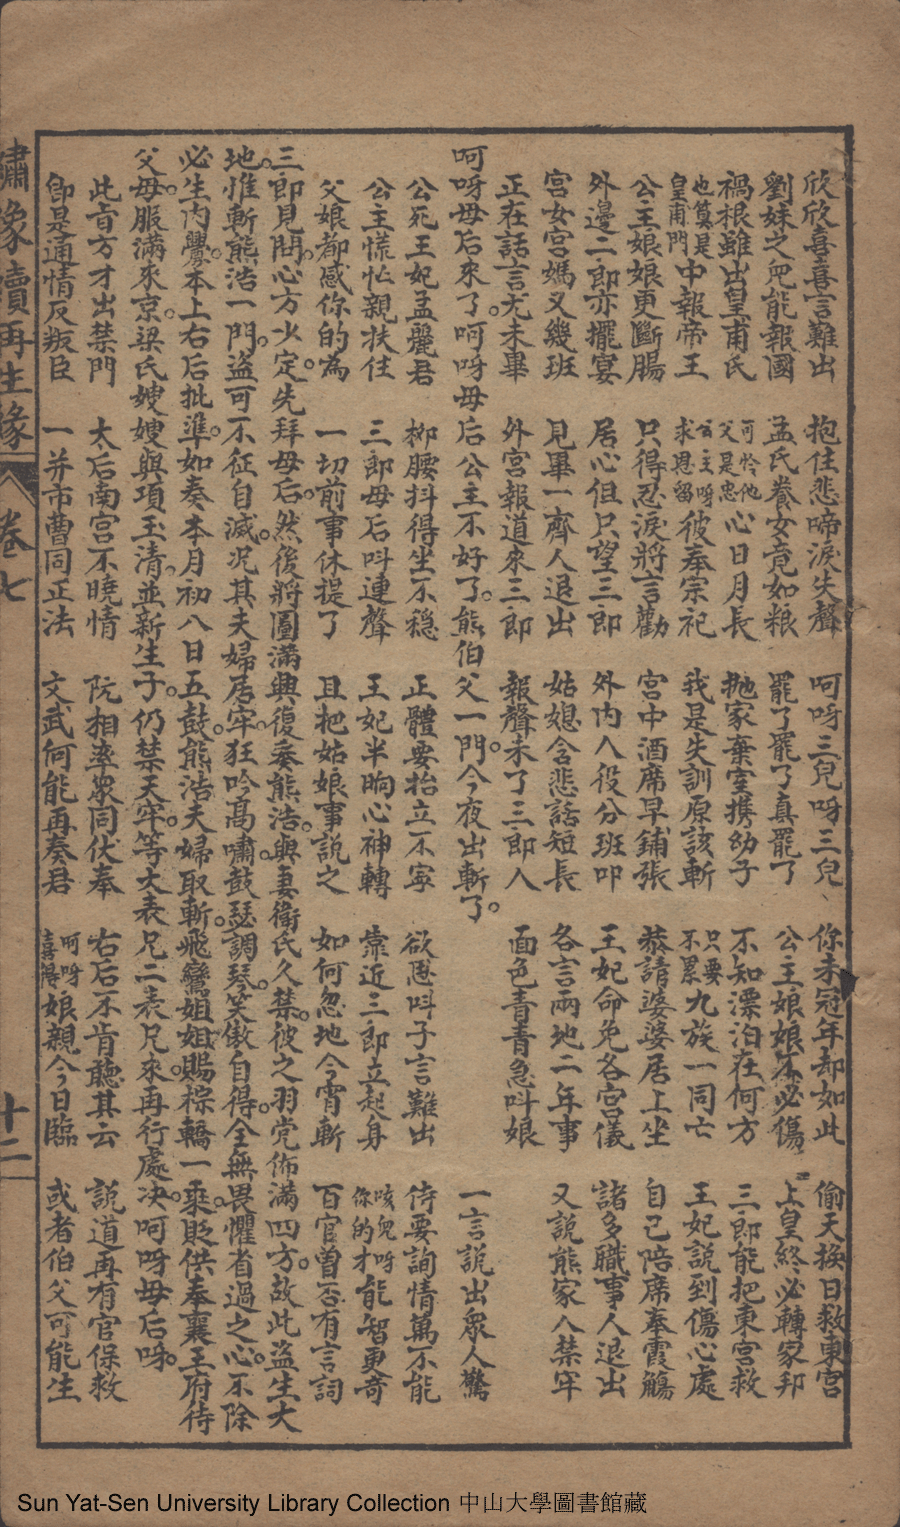 欣欣喜喜言難出　抱住悲啼淚失聲　呵呀三兒呀三兒　你未冠年却如此　偷天換日救東宮
劉妹之兒能報國　孟氏養女竟如粮　罷了罷了真罷了　公主娘娘不必傷　上皇終必轉家邦
禍根雖出皇甫氏　可怜他父是忠心日月長　抛家棄室携幼子　不知漂泊在何方　三郎能把東宮救
也算是皇甫門中報帝王　公主呀求恩留彼奉宗祀　我是失訓原該斬　只要不累九族一同亡　王妃說到傷心處
公主娘娘更斷腸　只得忍淚將言勸　宮中酒席早鋪張　恭請婆婆居上坐　自己陪席奉霞觴
外邊二郎亦擺宴　居心但只望三郎　外內人役分班叩　王妃命免各宮儀　諸多職事人退出
宮女宮媽又幾班　見畢一齊人退出　姑媳含悲話短長　各言兩地二年事　又說熊家人禁牢
正在話言尤未畢　外宮報道來三郎　報聲未了三郎入　面色青青急叫娘
呵呀母后來了呵呀母后公主不好了熊伯父一門今夜出斬了　一言說出衆人驚
公死王妃孟麗君　柳腰抖得坐不穩　正體要抬立不寧　欲慰叫子言難出　侍要詢情萬不能
公主慌忙親扶住　三郎母后叫連聲　王妃半晌心神轉　靠近三郎立起身　咳兒呀你的才能智更奇
父娘都感你的為　一切前事休提了　且把姑娘事說之　如何忽地今宵斬　百官曾否有言詞
三郎見問心方少定先拜母后然後將圖滿興復奏熊浩與妻衛氏久禁彼之羽党佈滿四方故此盜生大
地惟斬熊浩一門盜可不征自滅况其夫婦居牢狂吟高嘯鼓瑟調琴笑傲自得全無畏懼省過之心不除
必生內釁本上右后批準如奏本月初八日五鼓熊浩夫婦取斬飛鸞姐姐賜棕轎一乘貶供奉襄王府待
父母服滿來京梁氏嫂嫂與項玉清並新生子仍禁天牢等大表兄二表兄來再行處决呵呀母后呀
此旨方才出禁門　太后南宮不曉情　阮相率衆同伏奉　右后不肯聽其云　說道再有官保救
卽是通情反叛臣　一并市曹同正法　文武何能再奏君　呵呀喜得娘親今日臨　或者伯父可能生
繡像續再生緣　卷七　十二
Sun Yat-Sen University Library Collection 中山大學圖書館藏